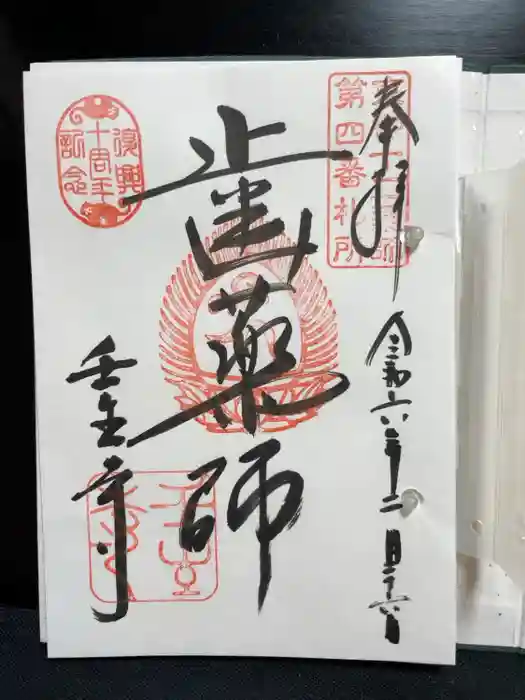 奉拝
第四番札所
令和六年二月二十六日
歯薬師
復興
十周年
記念
壬生寺